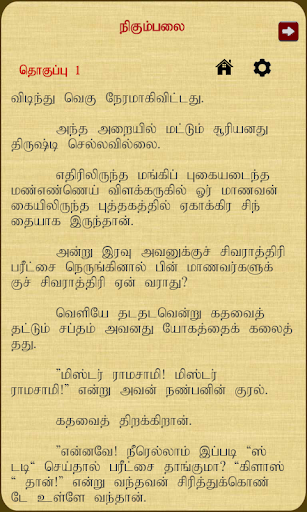 நிகும்பலை
தொகுப்பு 1
விடிந்து வெகு நேரமாகிவிட்டது.
அந்த அறையில் மட்டும் சூரியனது
திருஷ்டி செல்லவில்லை.
எதிரிலிருந்த மங்கிப் புகையடைந்த
மண்எண்ணெய் விளக்கருகில் ஓர் மாணவன்
கையிலிருந்த புத்தகத்தில் ஏகாக்கிர சிந்
தையாக இருந்தான்.
அன்று இரவு அவனுக்குச் சிவராத்திரி
பரீட்சை நெருங்கினால் பின் மாணவர்களுக்
குச் சிவராத்திரி ஏன் வராது?
வெளியே தடதடவென்று கதவைத்
தட்டும் சப்தம் அவனது யோகத்தைக் கலைத்
தது.
"மிஸ்டர் ராமசாமி! மிஸ்டர்
ராமசாமி!" என்று அவன் நண்பனின் குரல்.
கதவைத் திறக்கிறான்.
"என்னவே! நீரெல்லாம் இப்படி "ஸ்
டடி" செய்தால் பரீட்சை தாங்குமா? "கிளாஸ்
" தான்!" என்று வந்தவன் சிரித்துக்கொண்
டே உள்ளே வந்தான்.